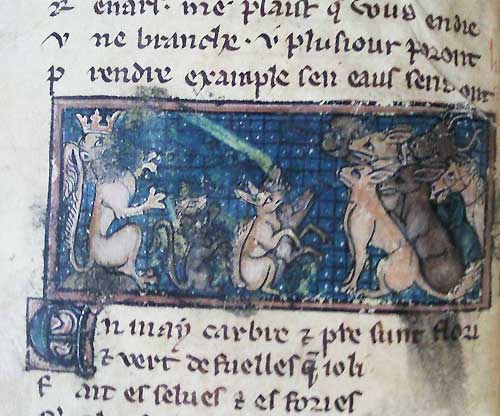 R enart . me plaist q vous endie
v ne branche . v plusiour poront
p rendre example sen eaus sen ont
En may carbre & pre sunt flori
& vert de fuelles & ioli
F ait es selues & es fories